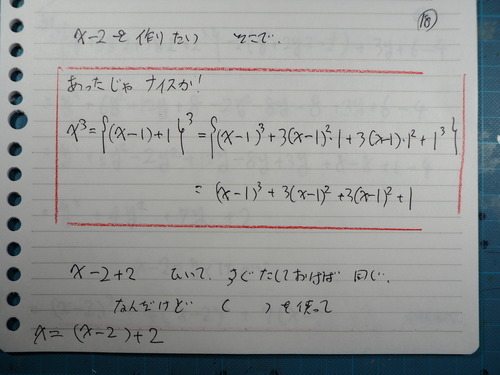 ⑱
x-2を作りたい そこで、
あったじゃ ナイスか!
x³={(x-1)+1}³={(x-1)³+3(x-1)²·1+3(x-1)·1²+1³}
=(x-1)³+3(x-1)²+3(x-1)²+1
x-2+2 ひいて、すぐたしておけば 同じ、
なんだけど ( )を使って
x=(x-2)+2